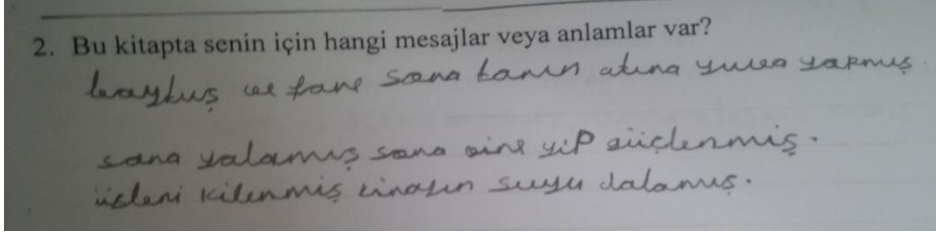 2. Bu kitapta senin için hangi mesajlar veya anlamlar var?
baykuş ve fare sona tanın atına yuva yapmış.
sona yalamış sona yine yip güçlenmiş.
kilenmiş suyu dalamış.